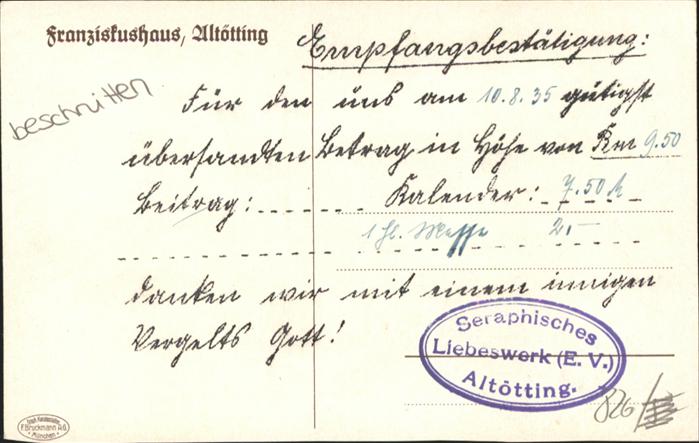 Franziskushaus, Altötting
Empfangsbestätigung:
beschnitten
Für den uns am 10.8.35 gütigst
übersandten Betrag in Höhe von Rm 9.50
Beitrag: Kalender: 7.50
1 hl. Messe 2.–
danken wir mit einem innigen
Vergelts Gott!
Seraphisches
Liebeswerk (E. V.)
Altötting.
826/
F. Bruckmann A.G.
München